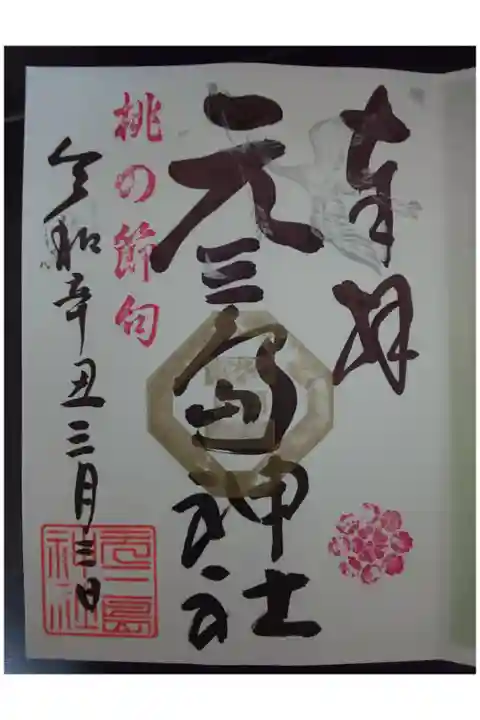 奉拝
元三島神社
桃の節句
令和辛丑三月三日
元三島
神社